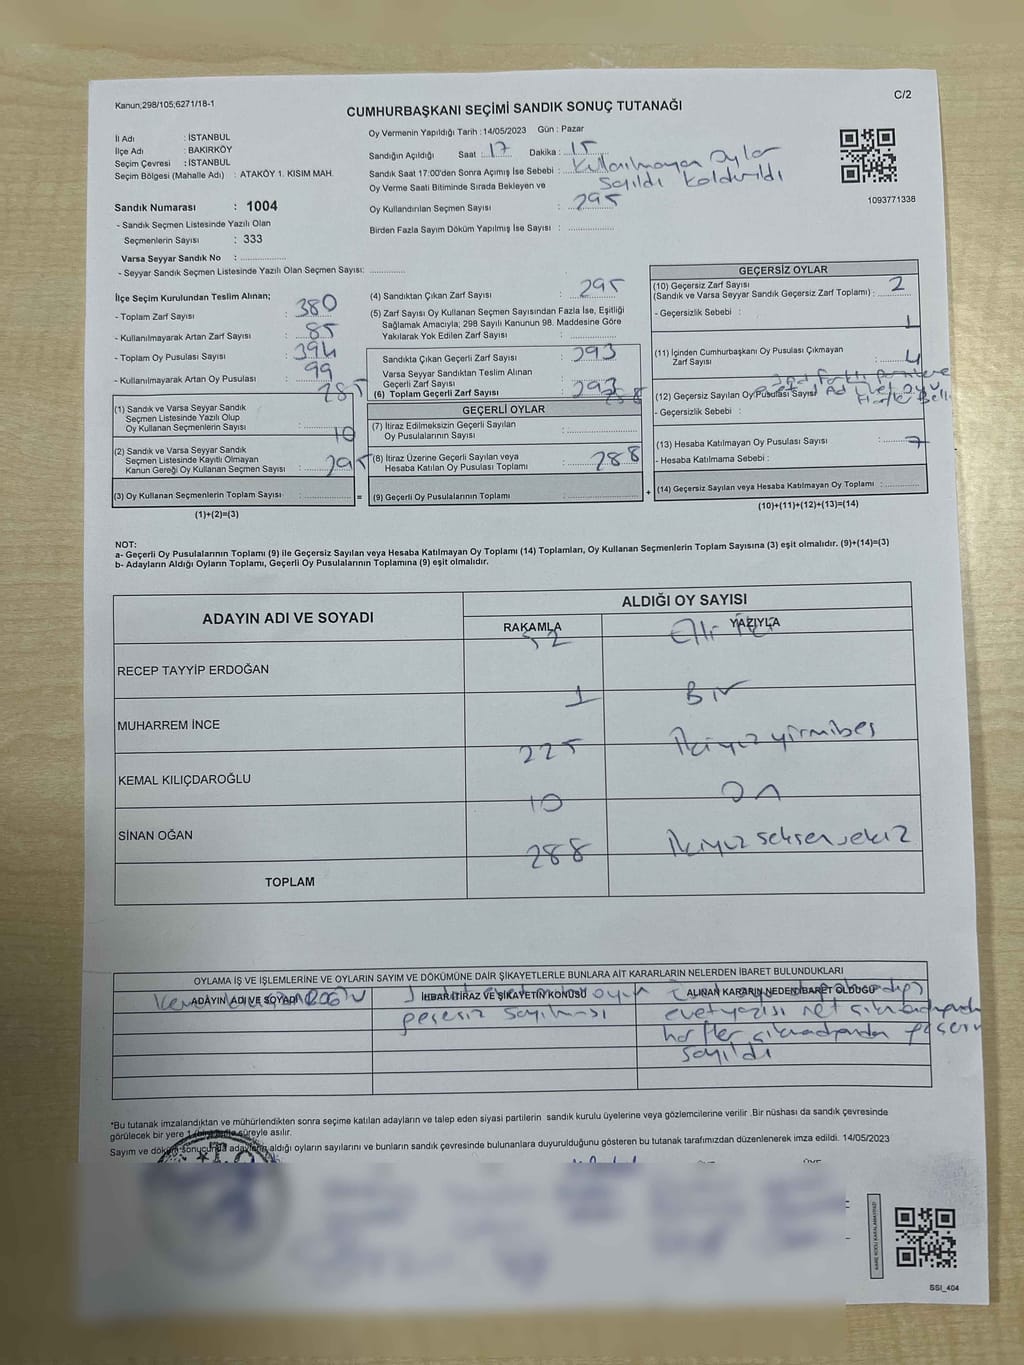 Kanun;298/105;6271/18-1
C/2
CUMHURBAŞKANI SEÇİMİ SANDIK SONUÇ TUTANAĞI
İl Adı : İSTANBUL
İlçe Adı : BAKIRKÖY
Seçim Çevresi : İSTANBUL
Seçim Bölgesi (Mahalle Adı) : ATAKÖY 1. KISIM MAH.
Sandık Numarası : 1004
- Sandık Seçmen Listesinde Yazılı Olan
Seçmenlerin Sayısı : 333
Varsa Seyyar Sandık No : ..............
- Seyyar Sandık Seçmen Listesinde Yazılı Olan Seçmen Sayısı: ............
Oy Vermenin Yapıldığı Tarih : 14/05/2023 Gün : Pazar
Sandığın Açıldığı Saat : 17 Dakika : 15
Sandık Saat 17:00'den Sonra Açımış İse Sebebi : Kullanılmayan oylar
Oy Verme Saati Bitiminde Sırada Bekleyen ve sayıldı kaldırıldı
Oy Kullandırılan Seçmen Sayısı : 295
Birden Fazla Sayım Döküm Yapılmış İse Sayısı : ..............
1093771338
İlçe Seçim Kurulundan Teslim Alınan;
- Toplam Zarf Sayısı : 380
- Kullanılmayarak Artan Zarf Sayısı : 85
- Toplam Oy Pusulası Sayısı : 394
- Kullanılmayarak Artan Oy Pusulası : 99
285
(1) Sandık ve Varsa Seyyar Sandık
Seçmen Listesinde Yazılı Olup
Oy Kullanan Seçmenlerin Sayısı :
10
(2) Sandık ve Varsa Seyyar Sandık
Seçmen Listesinde Kayıtlı Olmayan
Kanun Gereği Oy Kullanan Seçmen Sayısı : 295
(3) Oy Kullanan Seçmenlerin Toplam Sayısı : =
(1)+(2)=(3)
(4) Sandıktan Çıkan Zarf Sayısı : 295
(5) Zarf Sayısı Oy Kullanan Seçmen Sayısından Fazla İse, Eşitliği
Sağlamak Amacıyla; 298 Sayılı Kanunun 98. Maddesine Göre
Yakılarak Yok Edilen Zarf Sayısı :
Sandıkta Çıkan Geçerli Zarf Sayısı : 293
Varsa Seyyar Sandıktan Teslim Alınan
Geçerli Zarf Sayısı :
(6) Toplam Geçerli Zarf Sayısı : 293
288
GEÇERLİ OYLAR
(7) İtiraz Edilmeksizin Geçerli Sayılan
Oy Pusulalarının Sayısı :
(8) İtiraz Üzerine Geçerli Sayılan veya
Hesaba Katılan Oy Pusulası Toplamı : 288
(9) Geçerli Oy Pusulalarının Toplamı : +
GEÇERSİZ OYLAR
(10) Geçersiz Zarf Sayısı
(Sandık ve Varsa Seyyar Sandık Geçersiz Zarf Toplamı) : 2
- Geçersizlik Sebebi :
1
(11) İçinden Cumhurbaşkanı Oy Pusulası Çıkmayan
Zarf Sayısı : 4
(12) Geçersiz Sayılan Oy Pusulası Sayısı
- Geçersizlik Sebebi :
(13) Hesaba Katılmayan Oy Pusulası Sayısı : 7
- Hesaba Katılmama Sebebi :
(14) Geçersiz Sayılan veya Hesaba Katılmayan Oy Toplamı :
(10)+(11)+(12)+(13)=(14)
NOT:
a- Geçerli Oy Pusulalarının Toplamı (9) ile Geçersiz Sayılan veya Hesaba Katılmayan Oy Toplamı (14) Toplamları, Oy Kullanan Seçmenlerin Toplam Sayısına (3) eşit olmalıdır. (9)+(14)=(3)
b- Adayların Aldığı Oyların Toplamı, Geçerli Oy Pusulalarının Toplamına (9) eşit olmalıdır.
ADAYIN ADI VE SOYADI
ALDIĞI OY SAYISI
RAKAMLA YAZIYLA
52 Elli iki
RECEP TAYYİP ERDOĞAN
1 Bir
MUHARREM İNCE
225 İkiyüz yirmibeş
KEMAL KILIÇDAROĞLU
10 On
SİNAN OĞAN
288 İkiyüz seksen sekiz
TOPLAM
OYLAMA İŞ VE İŞLEMLERİNE VE OYLARIN SAYIM VE DÖKÜMÜNE DAİR ŞİKAYETLERLE BUNLARA AİT KARARLARIN NELERDEN İBARET BULUNDUKLARI
ADAYIN ADI VE SOYADI İHBAR İTİRAZ VE ŞİKAYETİN KONUSU ALINAN KARARIN NEDEN İBARET OLDUĞU
oyun
geçersiz sayılması evet yazısı net
harfler
sayıldı
*Bu tutanak imzalandıktan ve mühürlendikten sonra seçime katılan adayların ve talep eden siyasi partilerin sandık kurulu üyelerine veya gözlemcilerine verilir .Bir nüshası da sandık çevresinde
görülecek bir yere 1 (bir) hafta süreyle asılır.
Sayım ve döküm sonucunda adayların aldığı oyların sayılarını ve bunların sandık çevresinde bulunanlara duyurulduğunu gösteren bu tutanak tarafımızdan düzenlenerek imza edildi. 14/05/2023
KARE KODU KARALAMAYINIZ!
SSI_404